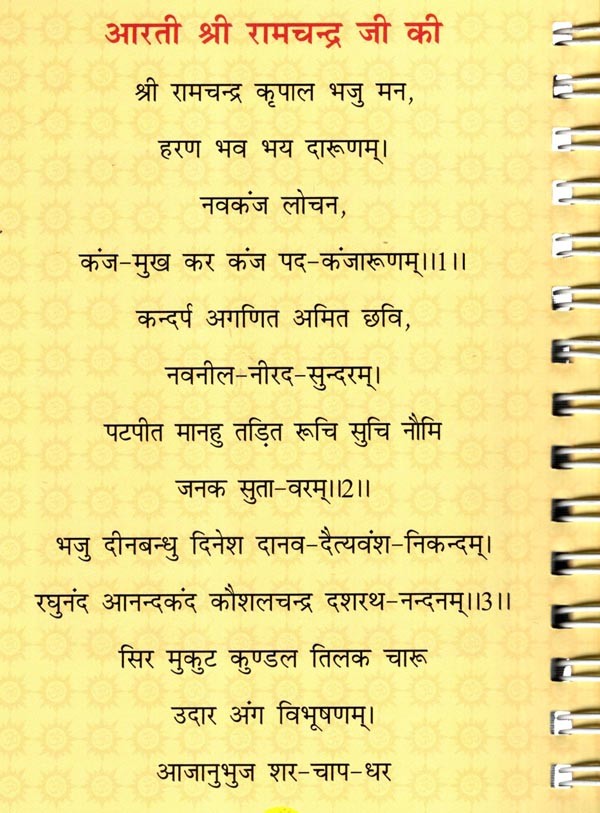 आरती श्री रामचन्द्र जी की
श्री रामचन्द्र कृपाल भजु मन,
हरण भव भय दारूणम्।
नवकंज लोचन,
कंज-मुख कर कंज पद-कंजारूणम्।।1।।
कन्दर्प अगणित अमित छवि,
नवनील-नीरद-सुन्दरम्।
पटपीत मानहु तड़ित रूचि सुचि नौमि
जनक सुता-वरम्।।2।।
भजु दीनबन्धु दिनेश दानव-दैत्यवंश-निकन्दम्।
रघुनंद आनन्दकंद कौशलचन्द्र दशरथ-नन्दनम्।।3।।
सिर मुकुट कुण्डल तिलक चारू
उदार अंग विभूषणम्।
आजानुभुज शर-चाप-धर